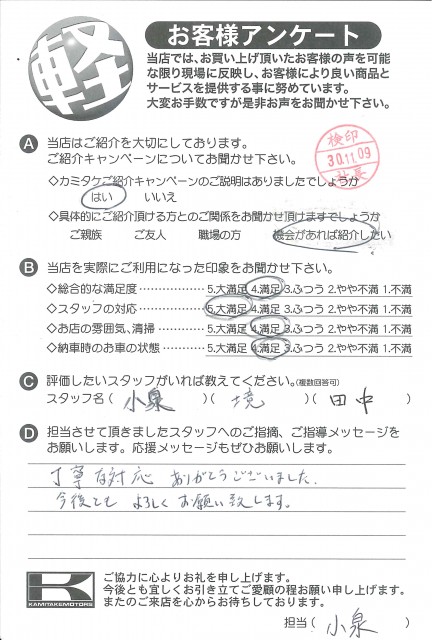 軽
お客様アンケート
当店では、お買い上げ頂いたお客様の声を可能
な限り現場に反映し、お客様により良い商品と
サービスを提供する事に努めています。
大変お手数ですが是非お声をお聞かせ下さい。
検印
30.11.09
社長
A 当店はご紹介を大切にしております。
ご紹介キャンペーンについてお聞かせ下さい。
◇カミタケご紹介キャンペーンのご説明はありましたでしょうか
はい いいえ
◇具体的にご紹介頂ける方とのご関係をお聞かせ頂けますでしょうか
ご親族 ご友人 職場の方 機会があれば紹介したい
B 当店を実際にご利用になった印象をお聞かせ下さい。
◇総合的な満足度………………5.大満足 4.満足 3.ふつう 2.やや不満 1.不満
◇スタッフの対応………………5.大満足 4.満足 3.ふつう 2.やや不満 1.不満
◇お店の雰囲気、清掃…………5.大満足 4.満足 3.ふつう 2.やや不満 1.不満
◇納車時のお車の状態…………5.大満足 4.満足 3.ふつう 2.やや不満 1.不満
C 評価したいスタッフがいれば教えてください。(複数回答可)
スタッフ名( 小泉 )( 境 )( 田中 )
D 担当させて頂きましたスタッフへのご指摘、ご指導メッセージを
お願いします。応援メッセージもぜひお願いします。
丁寧な対応 ありがとうございました。
今後とも よろしくお願い致します。
K
KAMITAKEMOTORS
ご協力に心よりお礼を申し上げます。
今後とも宜しくお引き立てご愛顧の程お願い申し上げます。
またのご来店を心からお待ちしております。
担当( 小泉 )